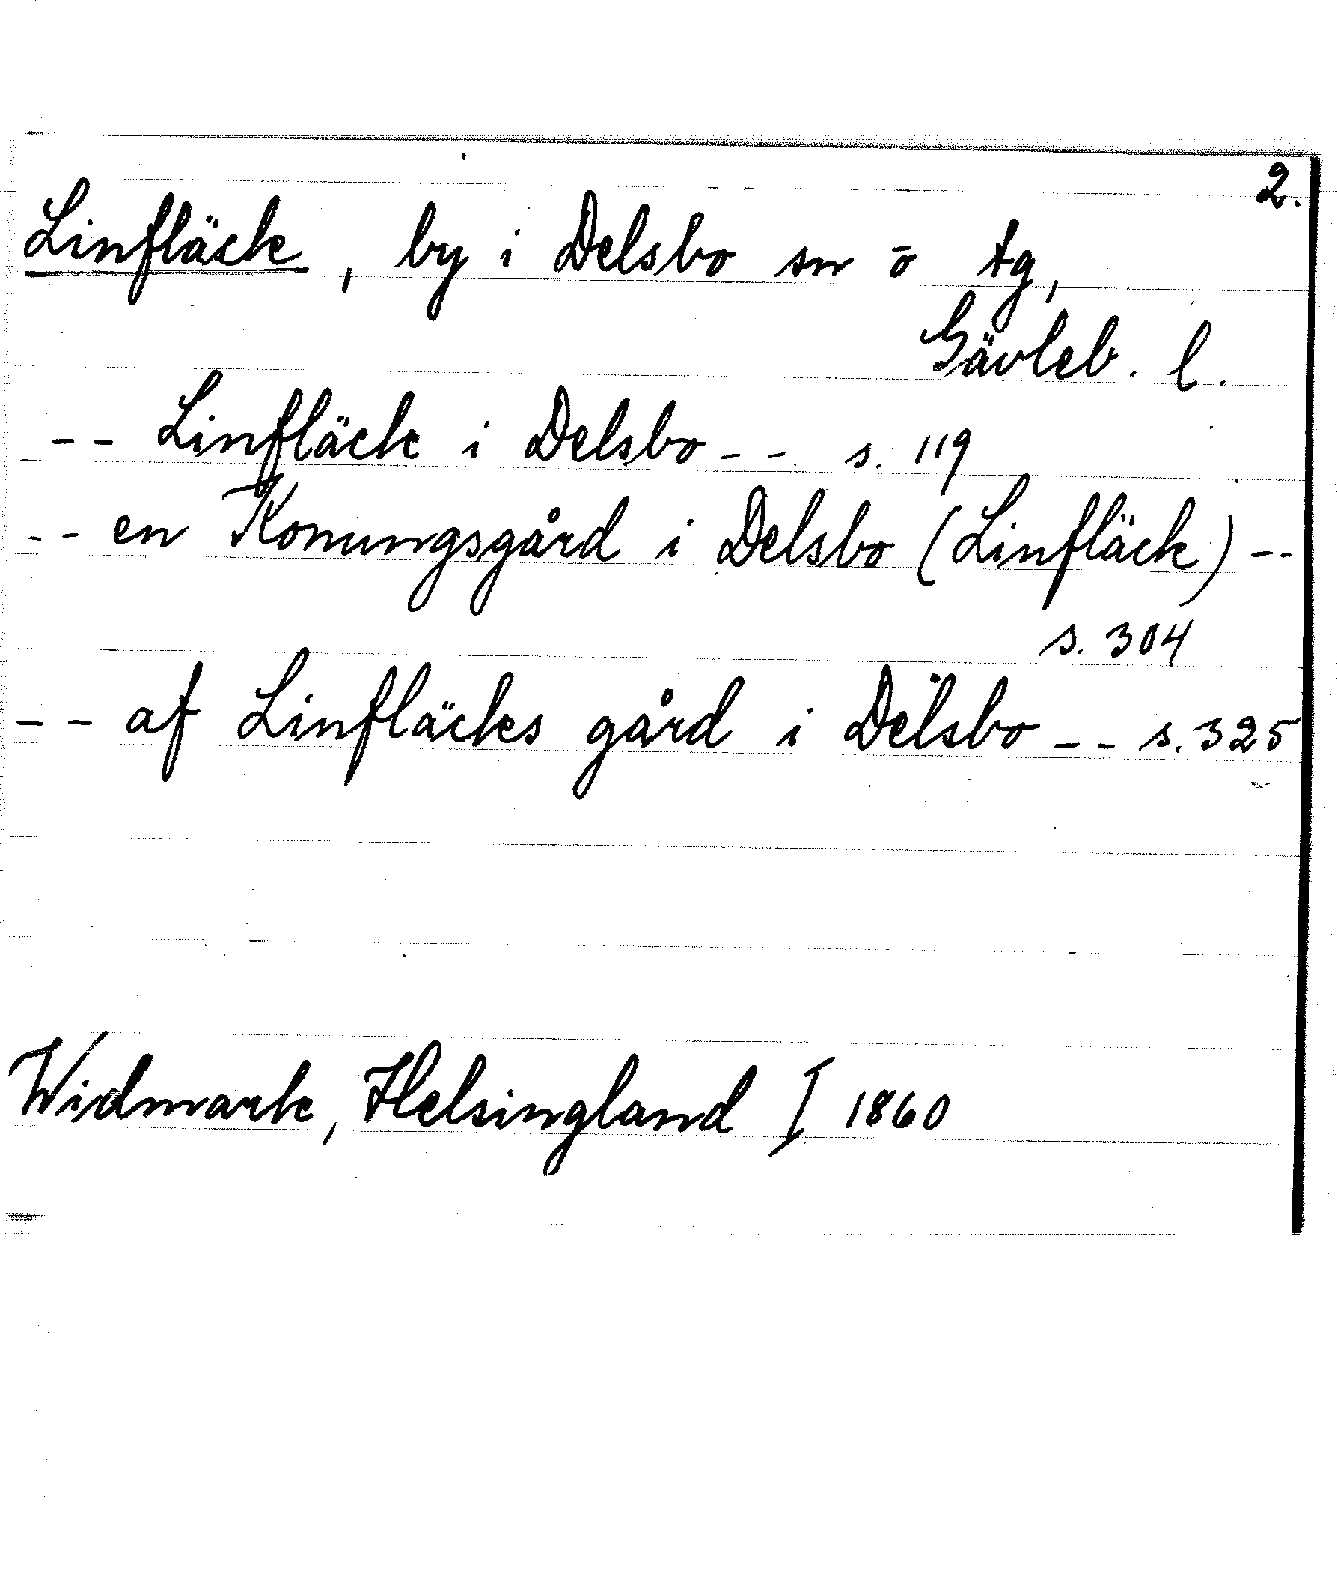 2.
Linfläck, by i Delsbo sn o tg,
Gävleb. l.
-- Linfläck i Delsbo -- s. 119
-- en Konungsgård i Delsbo (Linfläck) --
s. 304
-- af Linfläcks gård i Delsbo -- s. 325
Widmark, Helsingland I 1860